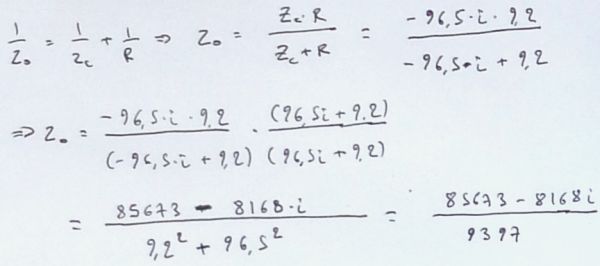 1/Z₀ = 1/Z_c + 1/R ⇒ Z₀ = Z_c·R / (Z_c + R) = -96,5·i·9,2 / (-96,5·i + 9,2)
⇒ Z₀ = -96,5·i·9,2 / ((-96,5·i + 9,2) · (96,5i + 9,2) / (96,5i + 9,2)
= (85673 - 8168·i) / (9,2² + 96,5²) = (85673 - 8168i) / 9397